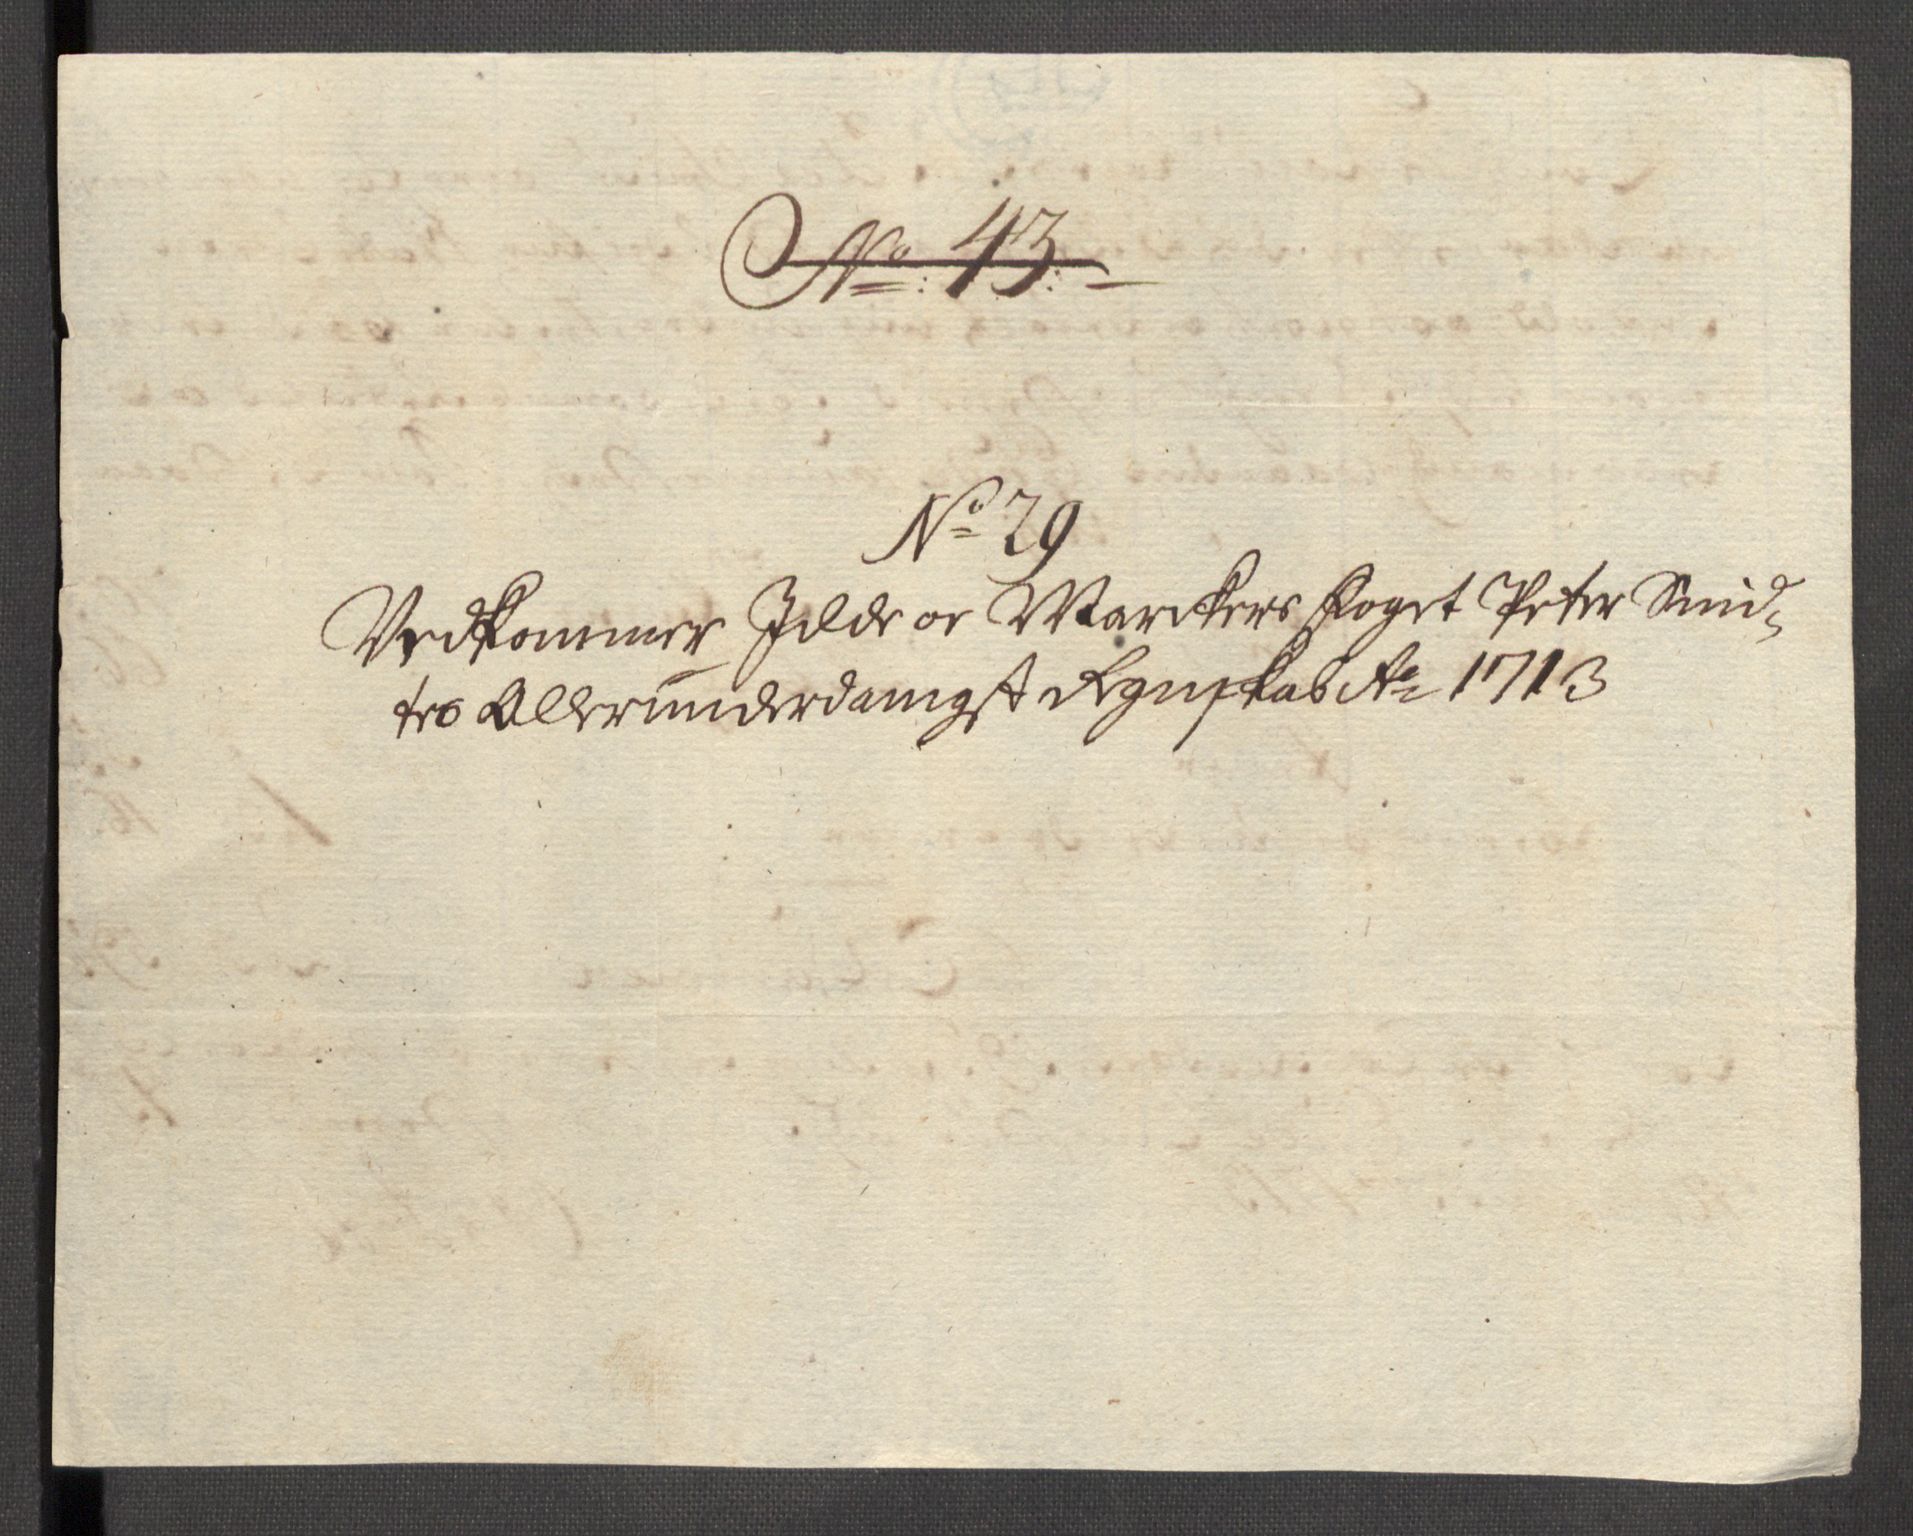 No: 43:
No 29
Vedkommer Idde oc Marckers Foget Peter Smid,
tes Allerunderdanigst Regnskab Ao 1713